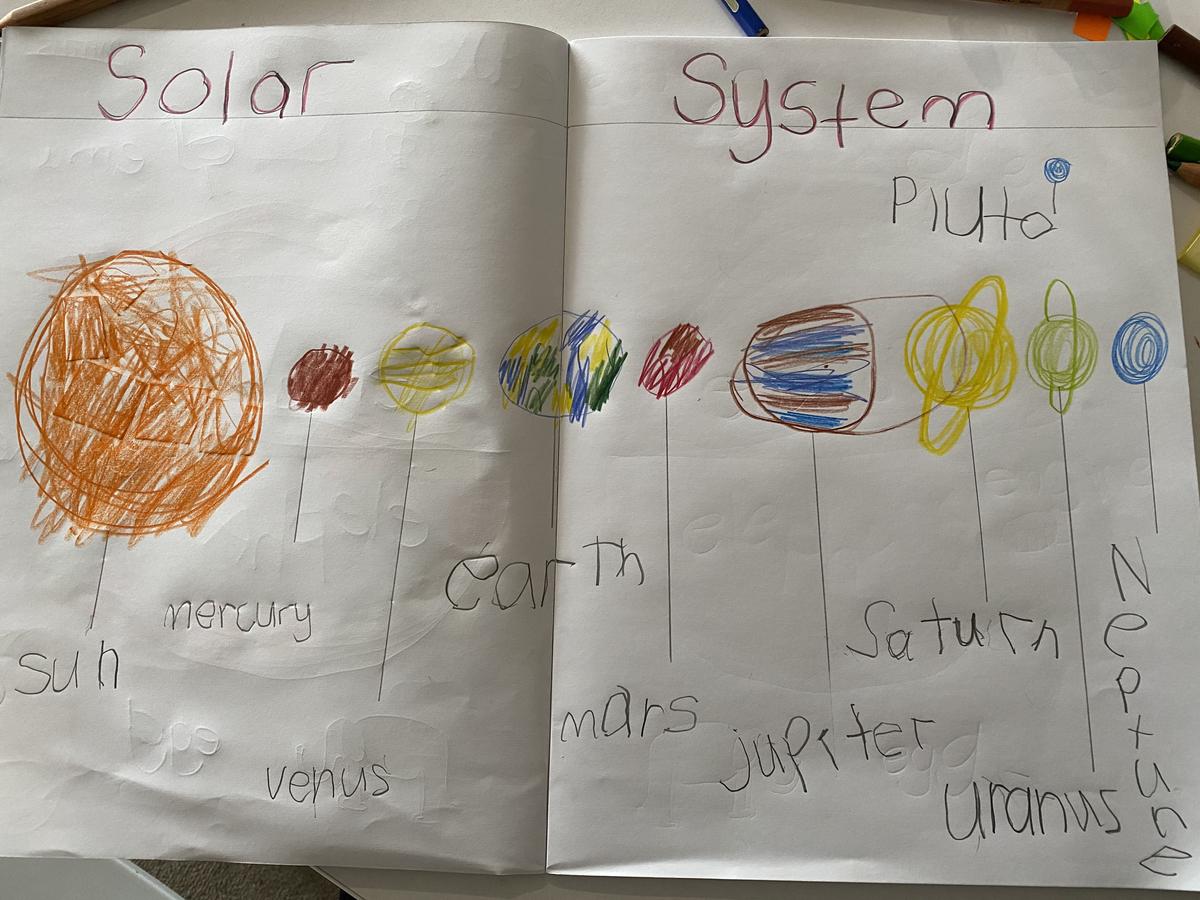 Solar System
Pluto
sun
mercury
venus
earth
mars
jupiter
Saturn
uranus
Neptune